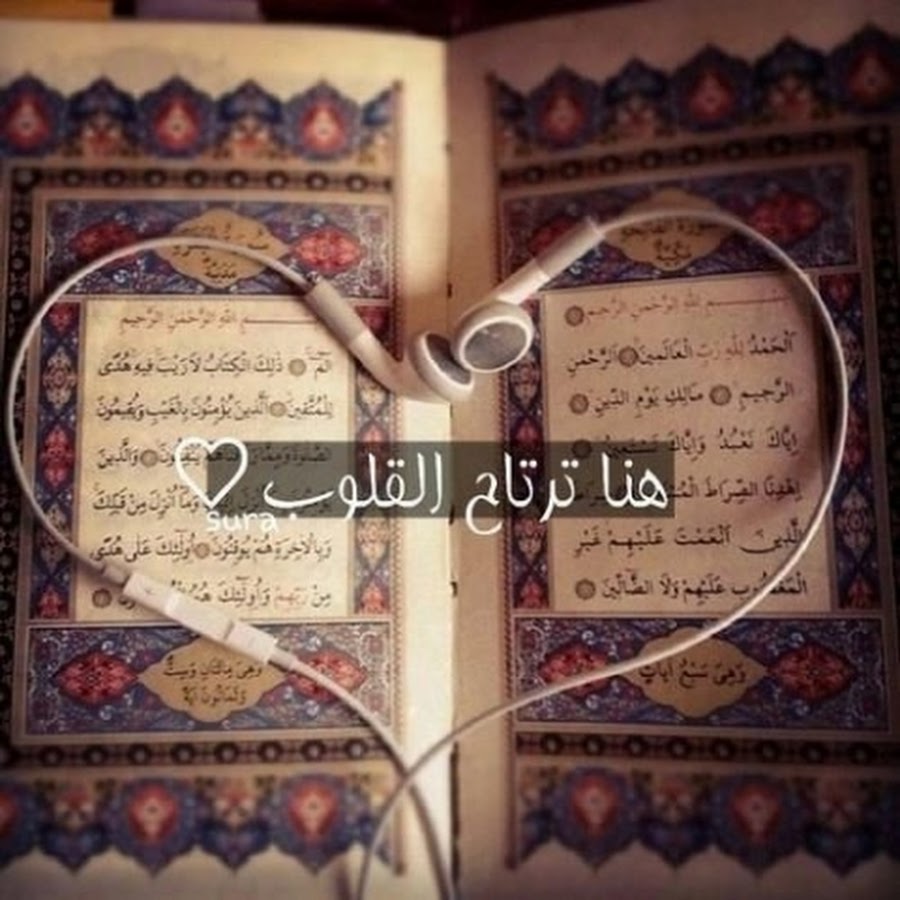 سورة الفاتحة
مكية
بسم الله الرحمن الرحيم
اَلْحَمْدُ لِلّٰهِ رَبِّ الْعَالَمِينَ اَلرَّحْمٰنِ
الرَّحِيمِ مَالِكِ يَوْمِ الدِّينِ
اِيَّاكَ نَعْبُدُ وَاِيَّاكَ نَسْتَعِينُ
اِهْدِنَا الصِّرَاطَ
الَّذِينَ اَنْعَمْتَ عَلَيْهِمْ غَيْرِ
الْمَغْضُوبِ عَلَيْهِمْ وَلَا الضَّالِّينَ
وَهِيَ سَبْعُ اٰيَاتٍ
مدنية
بسم الله الرحمن الرحيم
الٓمٓ ذٰلِكَ الْكِتَابُ لَا رَيْبَ فِيهِ هُدًى
لِلْمُتَّقِينَ اَلَّذِينَ يُؤْمِنُونَ بِالْغَيْبِ وَيُقِيمُونَ
الصَّلٰوةَ وَمِمَّا يُنْفِقُونَ وَالَّذِينَ
وَمَا اُنْزِلَ مِنْ قَبْلِكَ
وَبِالْاٰخِرَةِ هُمْ يُوقِنُونَ اُولٰئِكَ عَلٰى هُدًى
مِنْ رَبِّهِمْ وَاُولٰئِكَ هُمُ
وَهِيَ مِائَتَانِ وَسِتٌّ
وَثَمَانُونَ اٰيَةً
هنا ترتاح القلوب
sura